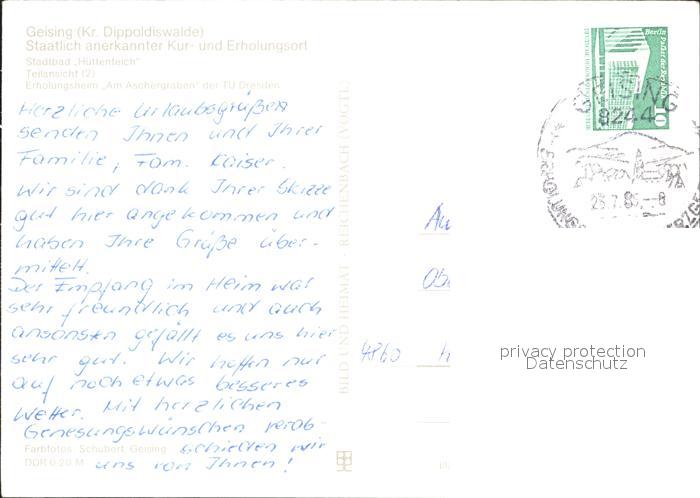 Geising (Kr. Dippoldiswalde)
Staatlich anerkannter Kur- und Erholungsort
Stadtbad „Hüttenteich“
Teilansicht (2)
Erholungsheim „Am Aschergraben“ der TU Dresden
Herzliche Urlaubsgrüßen
senden Ihnen und Ihrer
Familie, Fam. Kaiser.
Wir sind dank Ihrer Skizze
gut hier angekommen und
haben Ihre Grüße über-
mittelt.
Der Empfang im Heim war
sehr freundlich und auch
ansonsten gefällt es uns hier
sehr gut. Wir hoffen nur
auf noch etwas besseres
Wetter. Mit herzlichen
Genesungswünschen verab-
schieden wir
uns von Ihnen!
Farbfotos Schubert Geising
DDR 0,20 M
BILD UND HEIMAT · REICHENBACH (VOGTL)
Berlin
10
GEISING
8244
4860
privacy protection
Datenschutz